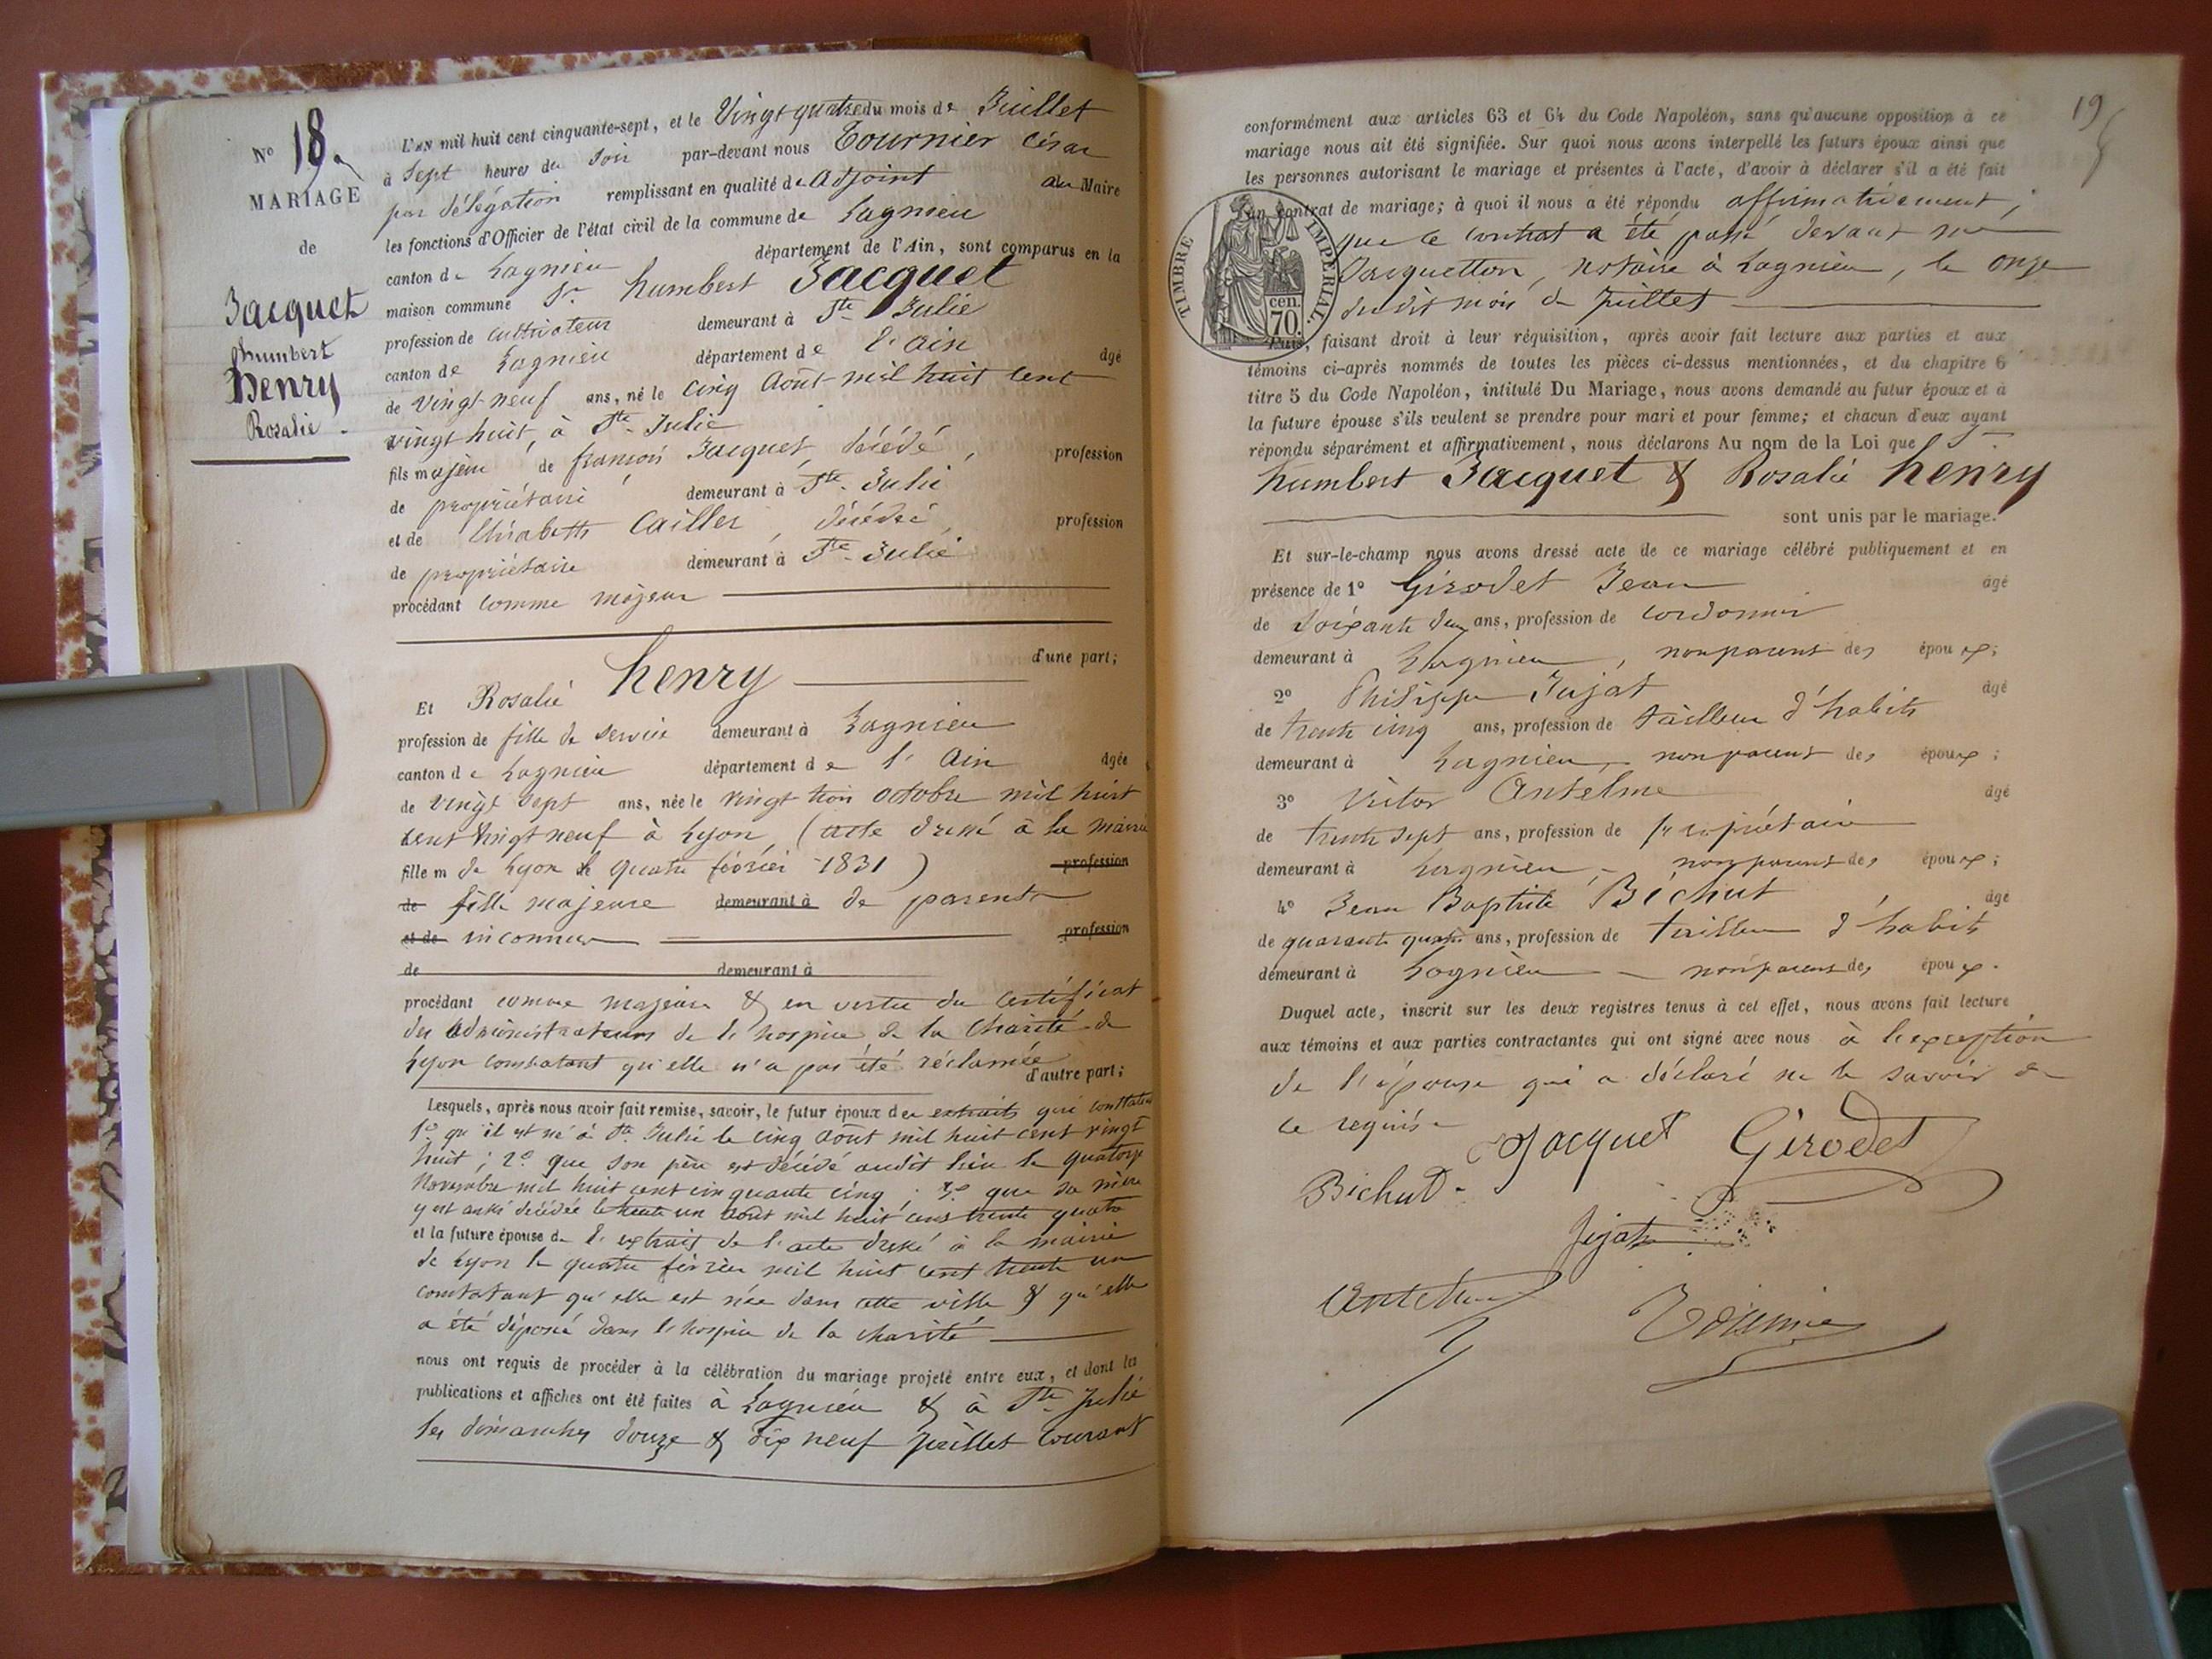 N° 18
MARIAGE
de
Jacquet
humbert
henry
Rosalie
L'an mil huit cent cinquante-sept, et le Vingt quatre du mois de Juillet
à Sept heures du soir par-devant nous Tournier César
par délégation remplissant en qualité d'Adjoint au Maire
les fonctions d'Officier de l'état civil de la commune de Lagnieu
canton de Lagnieu département de l'Ain, sont comparus en la
maison commune Sr humbert Jacquet
profession de cultivateur demeurant à Ste Julie
canton de Lagnieu département de l'ain âgé
de vingt neuf ans, né le cinq Août mil huit cent
vingt huit, à Ste Julie
fils majeur de françois Jacquet, décédé, profession
de propriétaire demeurant à Ste Julie
et de Elisabeth Cailler, décédée, profession
de propriétaire demeurant à Ste Julie
procédant comme majeur
d'une part;
Et Rosalie henry
profession de fille de service demeurant à Lagnieu
canton de Lagnieu département de l'Ain âgée
de vingt sept ans, née le vingt trois octobre mil huit
cent vingt neuf à Lyon, (acte dressé à la mairie
fille m de Lyon le quatre février 1831) profession
de fille majeure demeurant à de parents
et de inconnus profession
de demeurant à
procédant comme majeure & en vertu du certificat
des administrateurs de l'hospice de la Charité de
Lyon constatant qu'elle n'a pas été réclamée
d'autre part;
Lesquels, après nous avoir fait remise, savoir, le futur époux des extraits qui constatent
1° qu'il est né à Ste Julie le cinq août mil huit cent vingt
huit; 2° que son père est décédé audit lieu le quatorze
Novembre mil huit cent cinquante cinq; 3° que sa mère
y est aussi décédée le trente un août mil huit cent trente quatre
et la future épouse de l'extrait de l'acte dressé à la mairie
de Lyon le quatre février mil huit cent trente un
constatant qu'elle est née dans cette ville & qu'elle
a été déposée dans l'hospice de la charité
nous ont requis de procéder à la célébration du mariage projeté entre eux, et dont les
publications et affiches ont été faites à Lagnieu & à Ste Julie
les dimanches douze & dix neuf juillet courant
19
conformément aux articles 63 et 64 du Code Napoléon, sans qu'aucune opposition à ce
mariage nous ait été signifiée. Sur quoi nous avons interpellé les futurs époux ainsi que
les personnes autorisant le mariage et présentes à l'acte, d'avoir à déclarer s'il a été fait
un contrat de mariage; à quoi il nous a été répondu affirmativement,
que le contrat a été passé devant me
notaire à Lagnieu, le onze
dudit mois de juillet
TIMBRE IMPERIAL.
cen.
70.
Puis, faisant droit à leur réquisition, après avoir fait lecture aux parties et aux
témoins ci-après nommés de toutes les pièces ci-dessus mentionnées, et du chapitre 6
titre 5 du Code Napoléon, intitulé Du Mariage, nous avons demandé au futur époux et à
la future épouse s'ils veulent se prendre pour mari et pour femme; et chacun d'eux ayant
répondu séparément et affirmativement, nous déclarons Au nom de la Loi que Sr
humbert Jacquet & Rosalie henry
sont unis par le mariage.
Et sur-le-champ nous avons dressé acte de ce mariage célébré publiquement et en
présence de 1° Girodet Jean âgé
de soixante deux ans, profession de cordonnier
demeurant à Lagnieu, non parent des époux;
2° Philippe Jujat âgé
de trente cinq ans, profession de tailleur d'habits
demeurant à Lagnieu, non parent des époux;
3° Victor Antelme âgé
de trente sept ans, profession de propriétaire
demeurant à Lagnieu, non parent des époux;
4° Jean Baptiste Bichut âgé
de quarante quatre ans, profession de tailleur d'habits
demeurant à Lagnieu non parent des époux.
Duquel acte, inscrit sur les deux registres tenus à cet effet, nous avons fait lecture
aux témoins et aux parties contractantes qui ont signé avec nous à l'exception
de l'épouse qui a déclaré ne le savoir de
ce requise
Jacquet Girodet
Bichut
Jujat
Antelme
Tournier